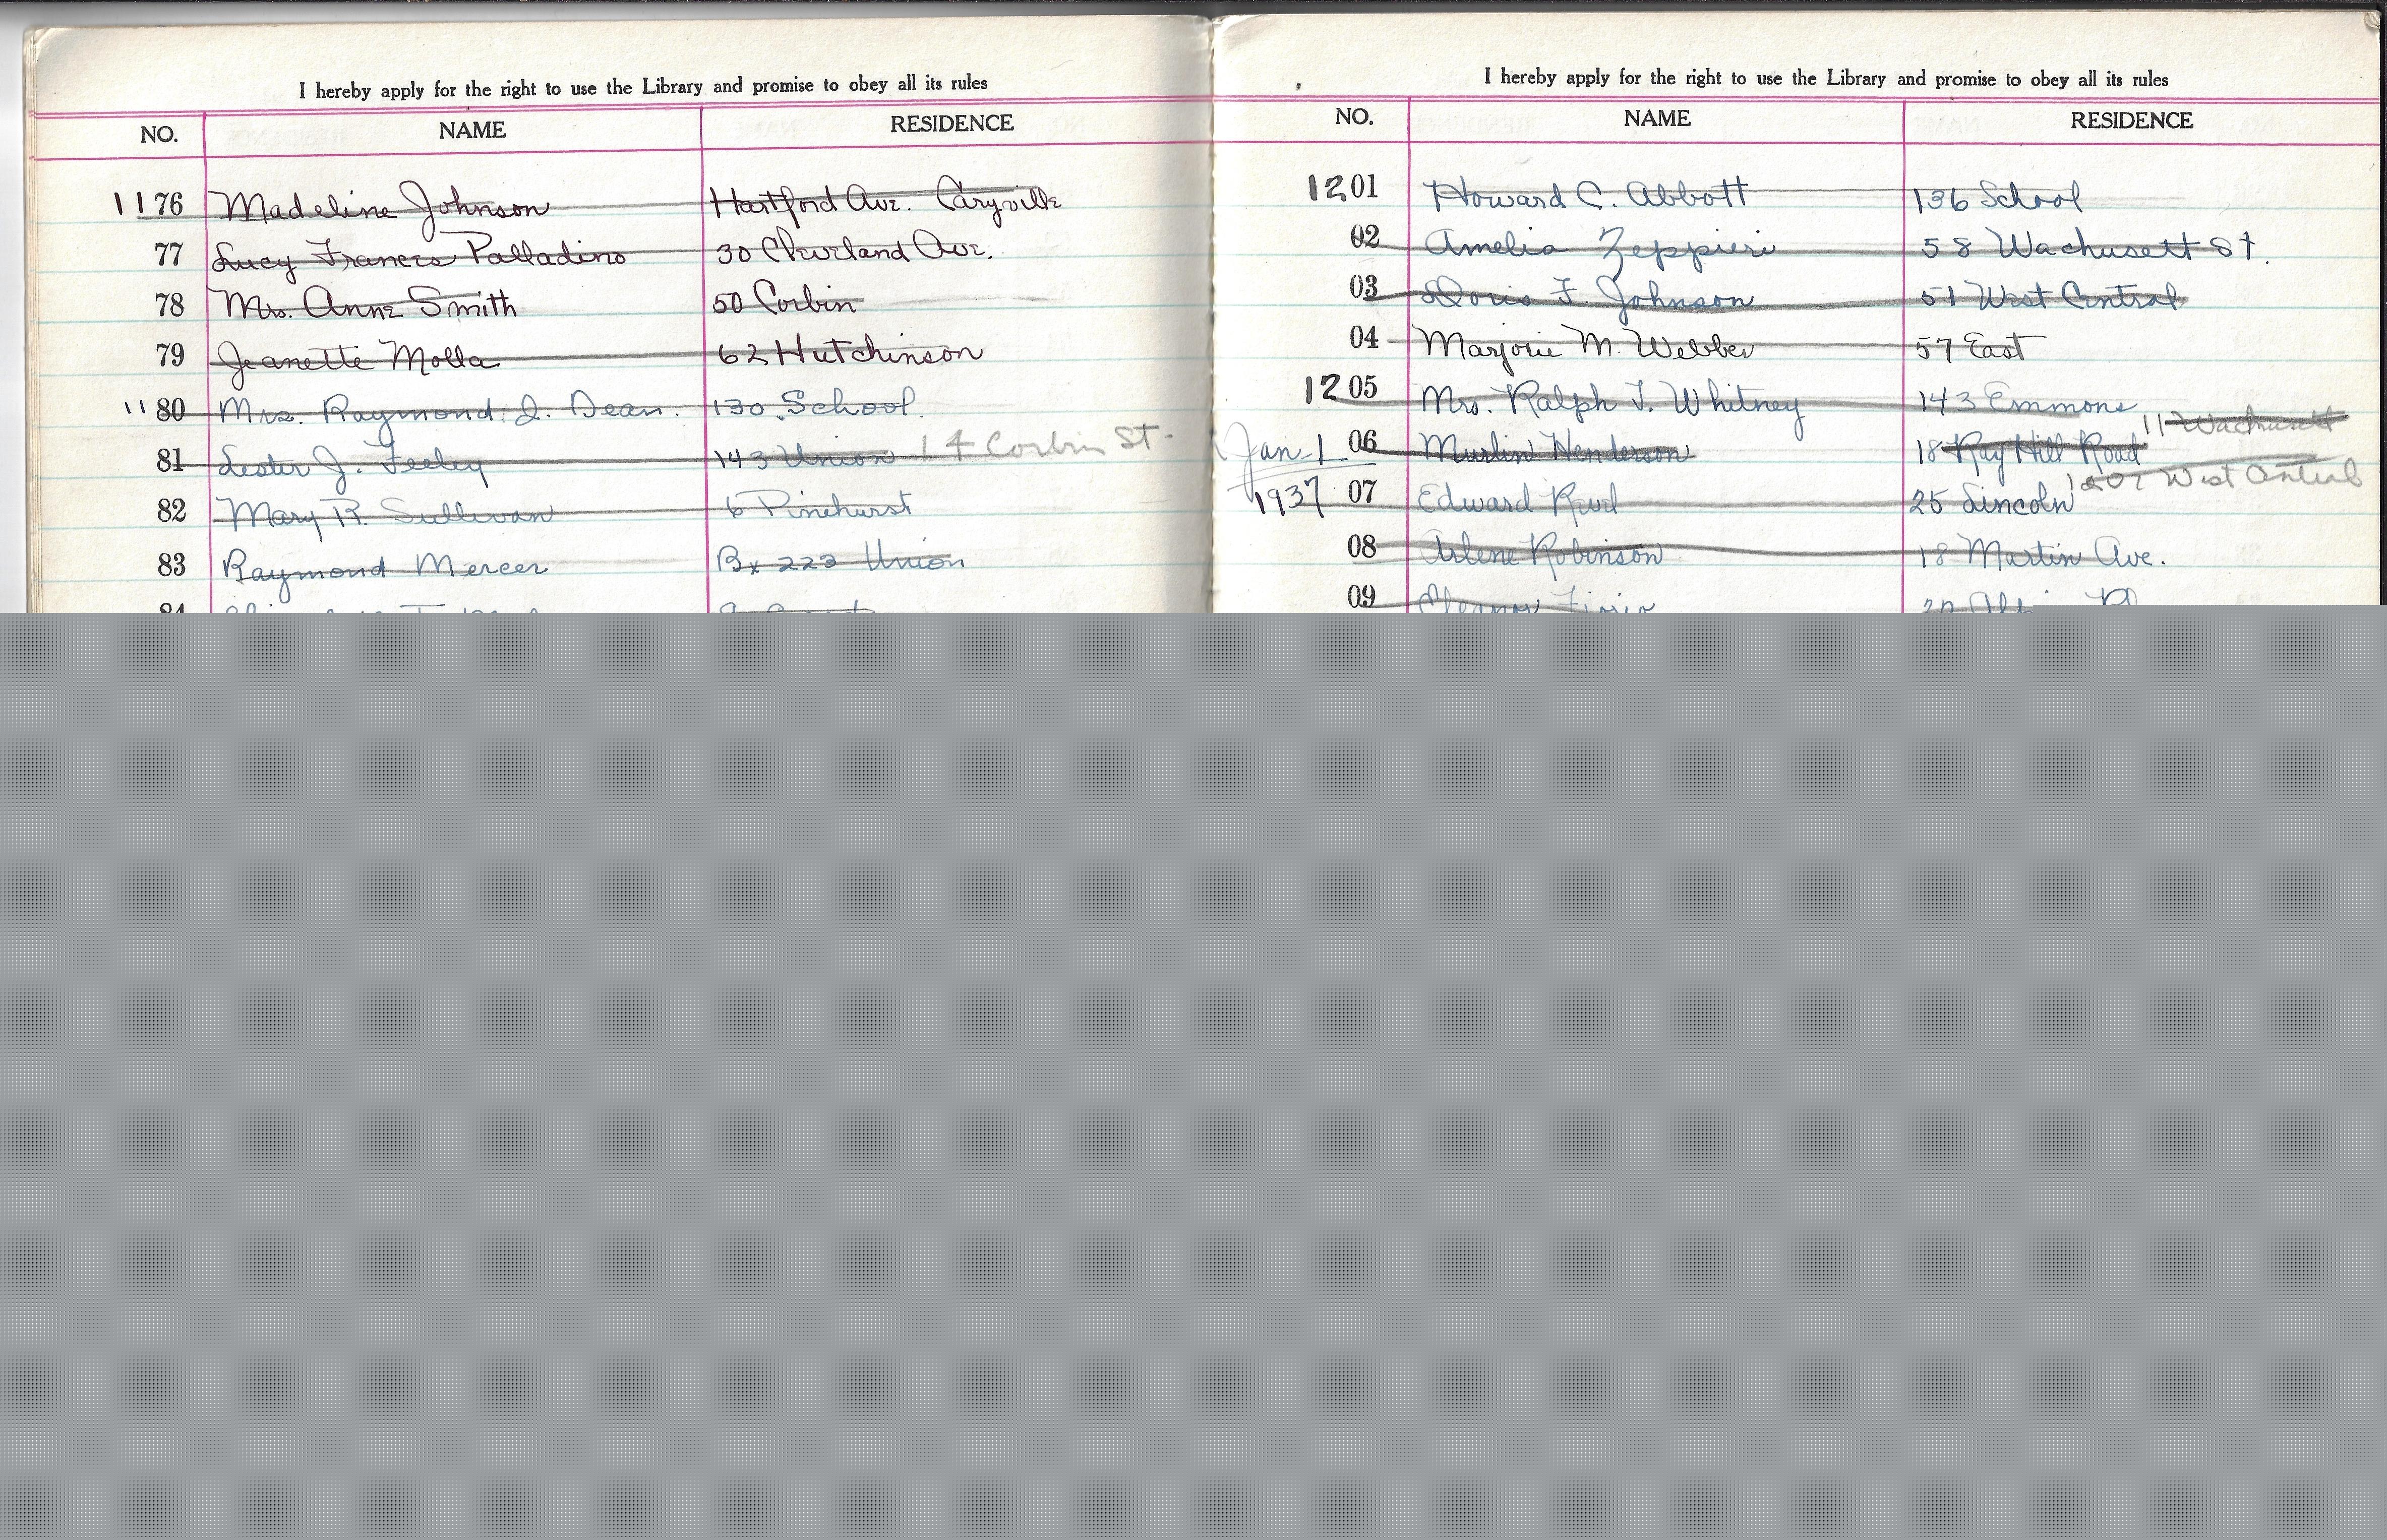 I hereby apply for the right to use the Library and promise to obey all its rules
NO. NAME RESIDENCE
1176 Madeline Johnson Hartford Ave. Caryville
77 Lucy Frances Palladino 30 Cleveland Ave.
78 Mrs. Anne Smith 50 Corbin
79 Jeanette Molla 62 Hutchinson
1180 Mrs. Raymond J. Dean. 130 School.
81 Lester J. Feeley 143 Union 14 Corbin St.
82 Mary R. Sullivan 6 Pinehurst
83 Raymond Mercer Bx 223 Union
84
I hereby apply for the right to use the Library and promise to obey all its rules
NO. NAME RESIDENCE
1201 Howard C. Abbott 136 School
02 Amelia Zeppieri 58 Wachusett St.
03 Doris F. Johnson 51 West Central
04 Marjorie M. Webber 57 East
1205 Mrs. Ralph T. Whitney 143 Emmons
11 Wachusett
Jan. 1 06 Henderson 18 Ray Hill Road
West Central
1937 07 Edward 25 Lincoln
08 Arlene Robinson 18 Martin Ave.
09 Eleanor